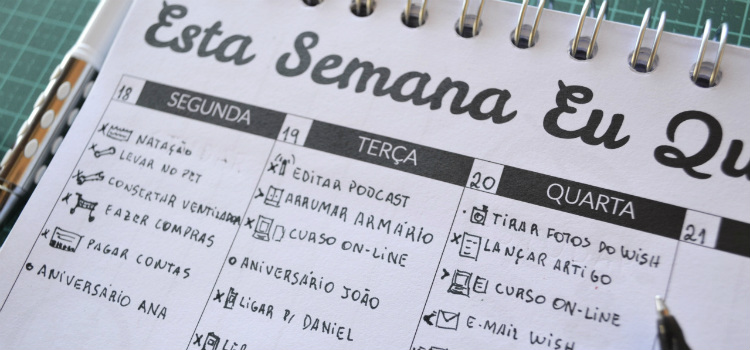 Esta Semana Eu Qu
18 SEGUNDA
x NATAÇÃO
x LEVAR NO PET
x CONSERTAR VENTILADOR
x FAZER COMPRAS
x PAGAR CONTAS
o ANIVERSÁRIO ANA
19 TERÇA
x EDITAR PODCAST
> ARRUMAR ARMÁRIO
x CURSO ON-LINE
o ANIVERSÁRIO JOÃO
x LIGAR P/ DANIEL
x LER
20 QUARTA
• TIRAR FOTOS DO WISH
x LANÇAR ARTIGO
> CURSO ON-LINE
< E-MAIL WISH
21